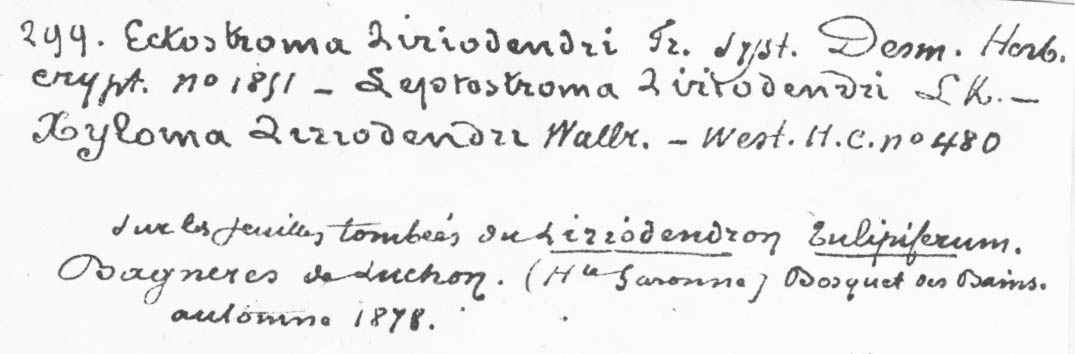 299. Eckostroma Liriodendri Fr. syst. Desm. Herb.
crypt. no 1851 – Leptostroma Liriodendri LK. –
Xyloma Liriodendri Wallr. – West. H.C. no 480
sur les feuilles tombées du Liriodendron tulipiferum.
Bagneres de Luchon. (Hte Garonne) Bosquet des Bains.
automne 1878.